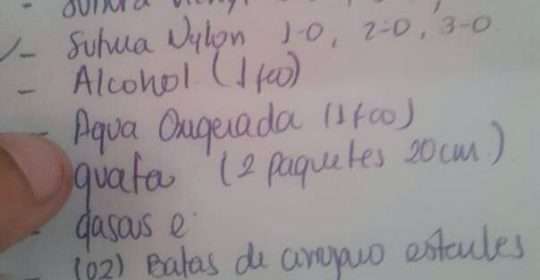 - Sutura Nylon 1-0, 2-0, 3-0
- Alcohol (1 fco)
- Agua Oxigenada (1 fco)
guata (2 paquetes 20cm.)
- gasas e
- (02) Batas de cirujano esteriles